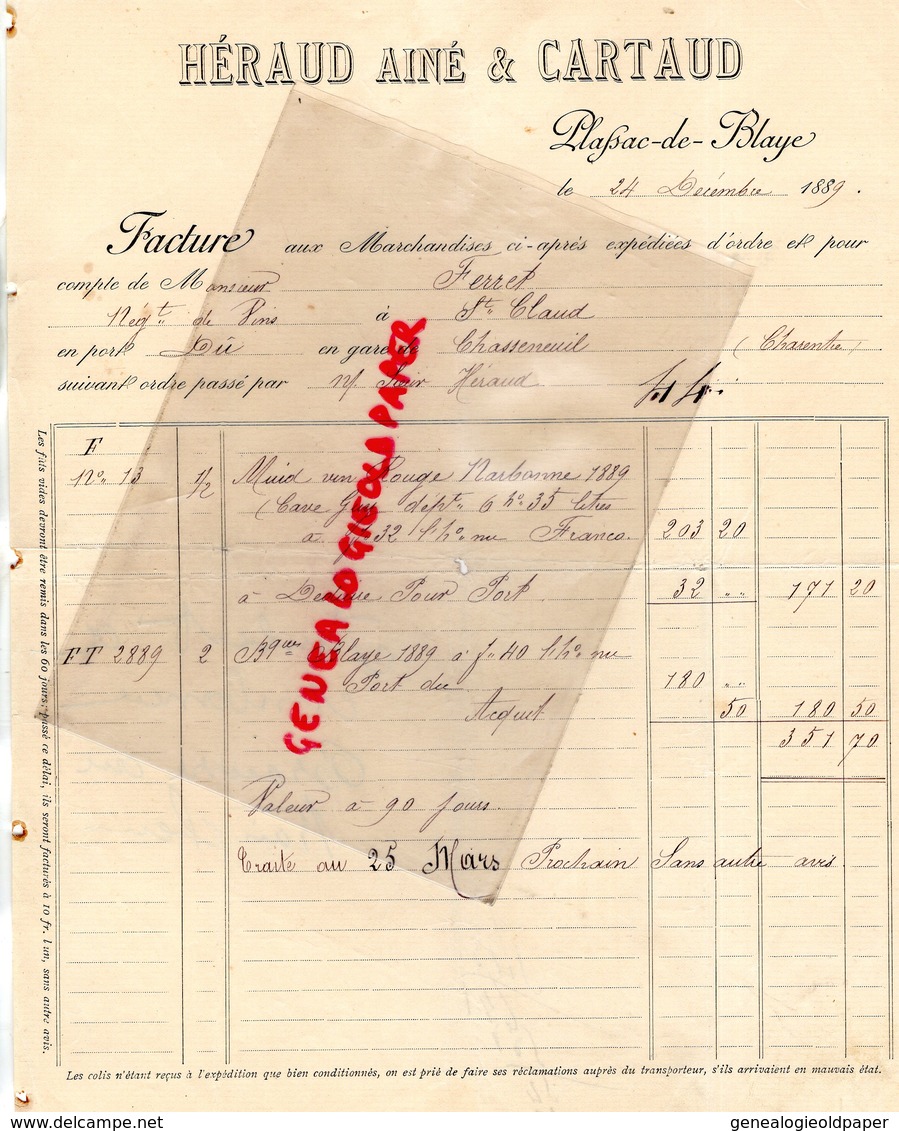 HÉRAUD AINÉ & CARTAUD
Plassac-de-Blaye
le 24 Décembre 1889.
Facture aux Marchandises ci-après expédiées d'ordre et pour
compte de Monsieur Ferret
Négt. de Vins à St. Claud
en port Dû en gare de Chasseneuil (Charente)
suivant ordre passé par Héraud
F
No. 13 1/2 Muid vin Rouge Narbonne 1889
(Cave dépt. 6 ho. 35 litres
à 32 l'ho. nu Franco. 203 20
à Déduire Pour Port. 32 " 171 20
FT 2889 2 Bques Blaye 1889 à f. 40 l'ho. nu
Port du 180 "
Acquit 50 180 50
351 70
Valeur à 90 jours.
Traite au 25 Mars Prochain Sans autre avis.
Les fûts vides devront être remis dans les 60 jours; passé ce délai, ils seront facturés à 10 fr. l'un, sans autre avis.
Les colis n'étant reçus à l'expédition que bien conditionnés, on est prié de faire ses réclamations auprès du transporteur, s'ils arrivaient en mauvais état.
GENEALOGIEOLDPAPER
delcampe.net
genealogieoldpaper